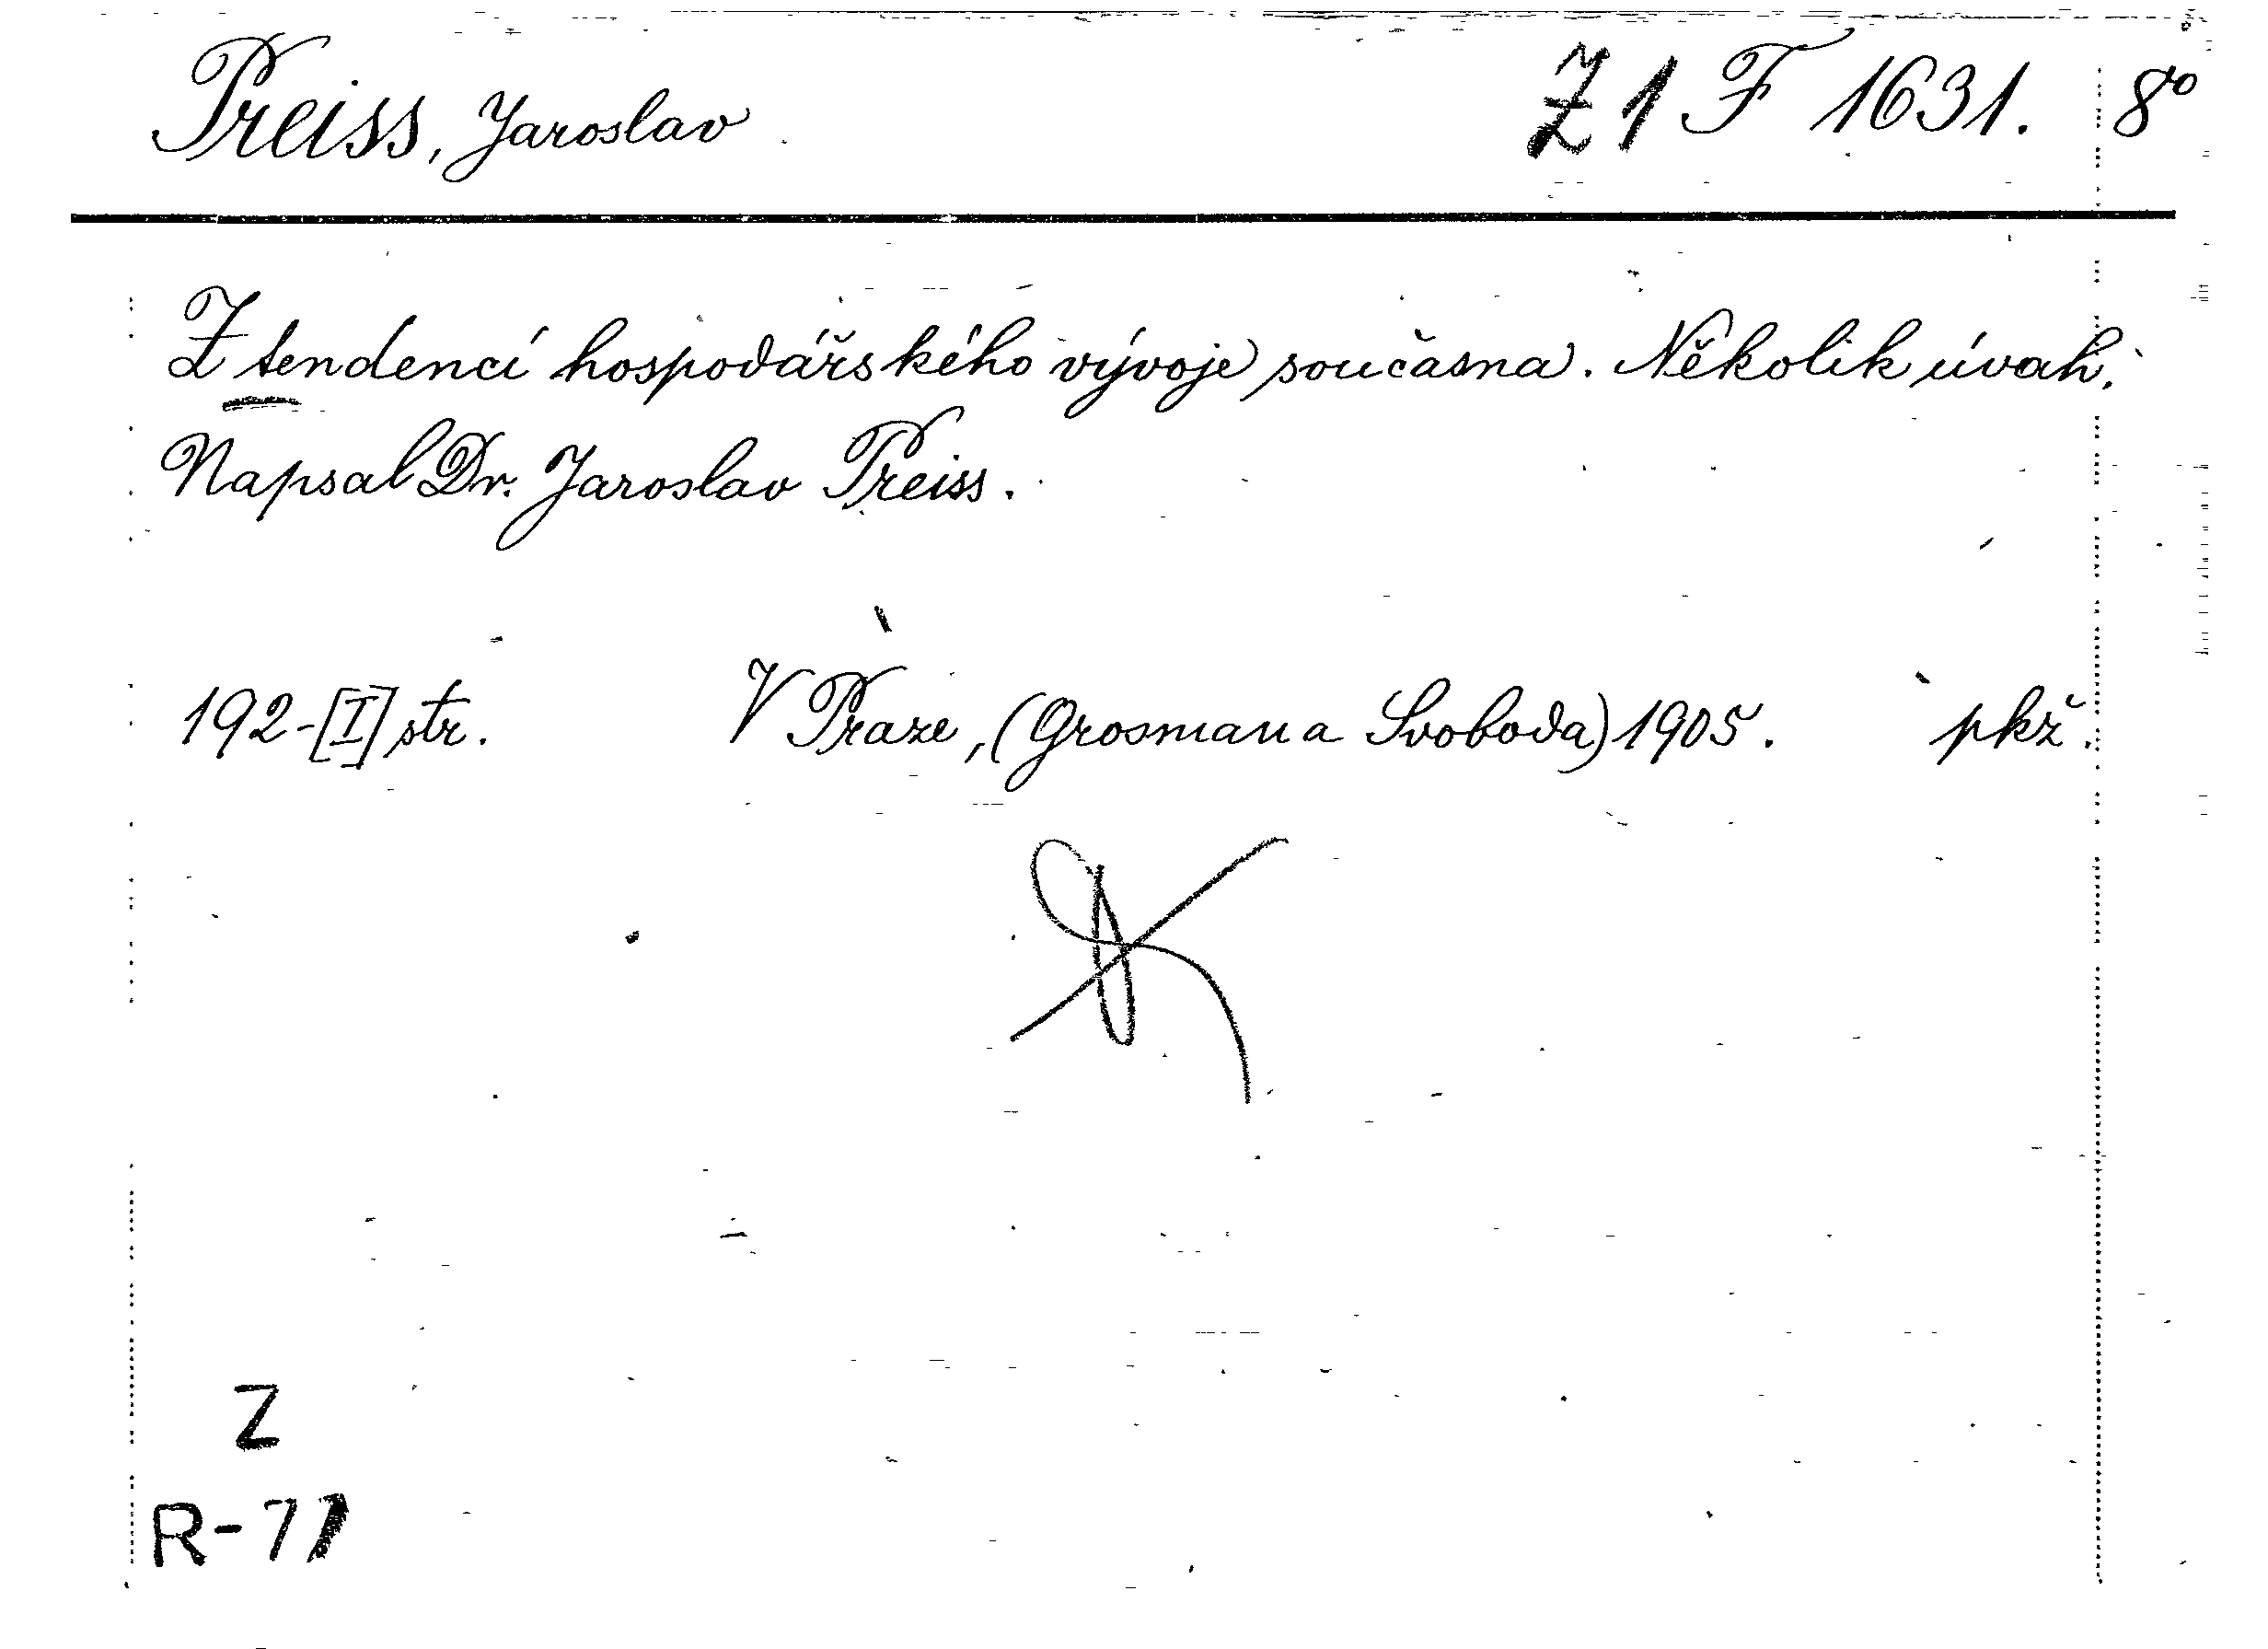 Preiss, Jaroslav Z 1 F 1631. 8°
Z tendencí hospodářského vývoje současna. Několik úvah.
Napsal Dr. Jaroslav Preiss.
192-[I] str. V Praze, (Grosman a Svoboda) 1905. pkž.
Z
R-71